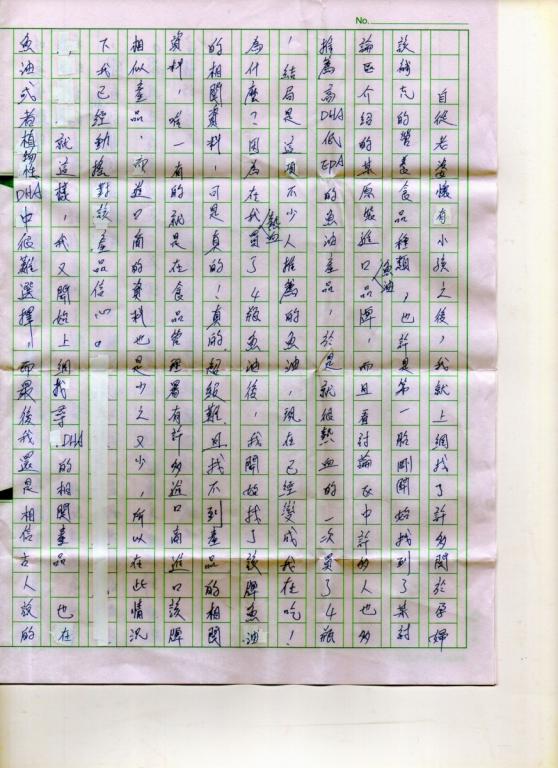 No.
自從老婆懷有小孩之後,我就上網找了許多關於孕婦
該補充的營養食品種類,也許是第一胎剛開始找到了某討
論區介紹的某原裝進口魚油品牌,而且看討論區中許多人也多
推薦高DHA低EPA的魚油產品,於是就很熱血的一次買了4瓶
,結局是這項不少人推薦的魚油,現在已經變成我在吃!
為什麼?因為在我熱血買了4瓶魚油後,我開始找了該牌魚油
的相關資料,可是真的!真的超級難且找不到產品的相關
資料,唯一有的就是在食品管理署有許多進口商進口該牌
相似產品,而進口商的資料也是少之又少,所以在此情況
下我已經動搖對該產品信心。
就這樣,我又開始上網找尋DHA的相關產品也在
魚油或者植物性DHA中很難選擇,而最後我還是相信古人說的